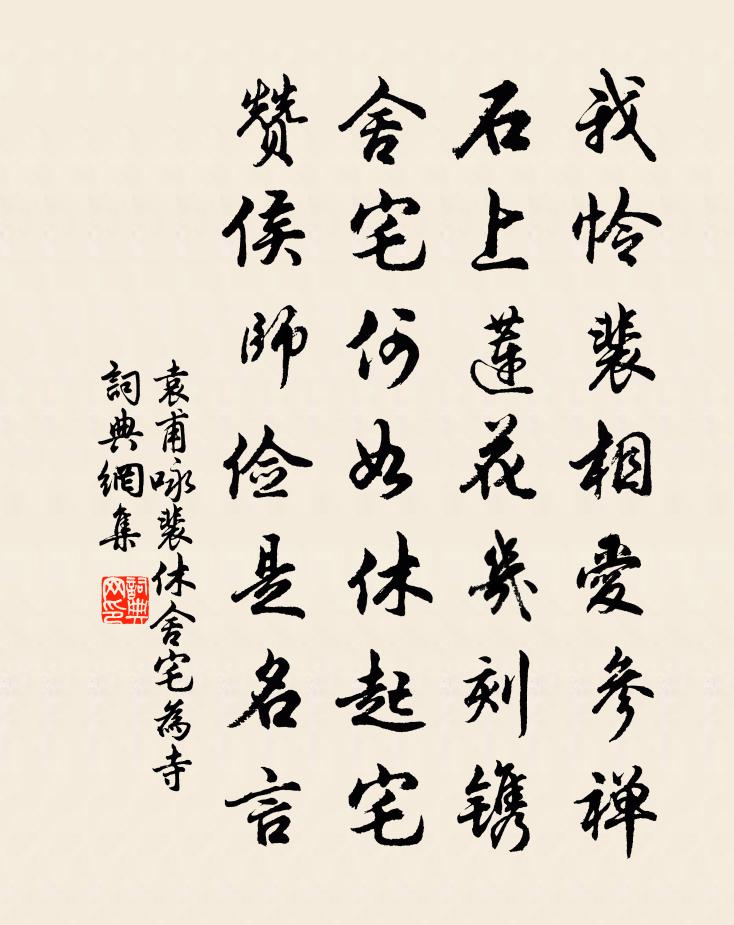 我怜裴相愛參禪
石上蓮花幾刻镌
舍宅何如休起宅
赞侯師俭是名言
袁甫咏裴休舍宅為寺
詞典網集
詞典網印